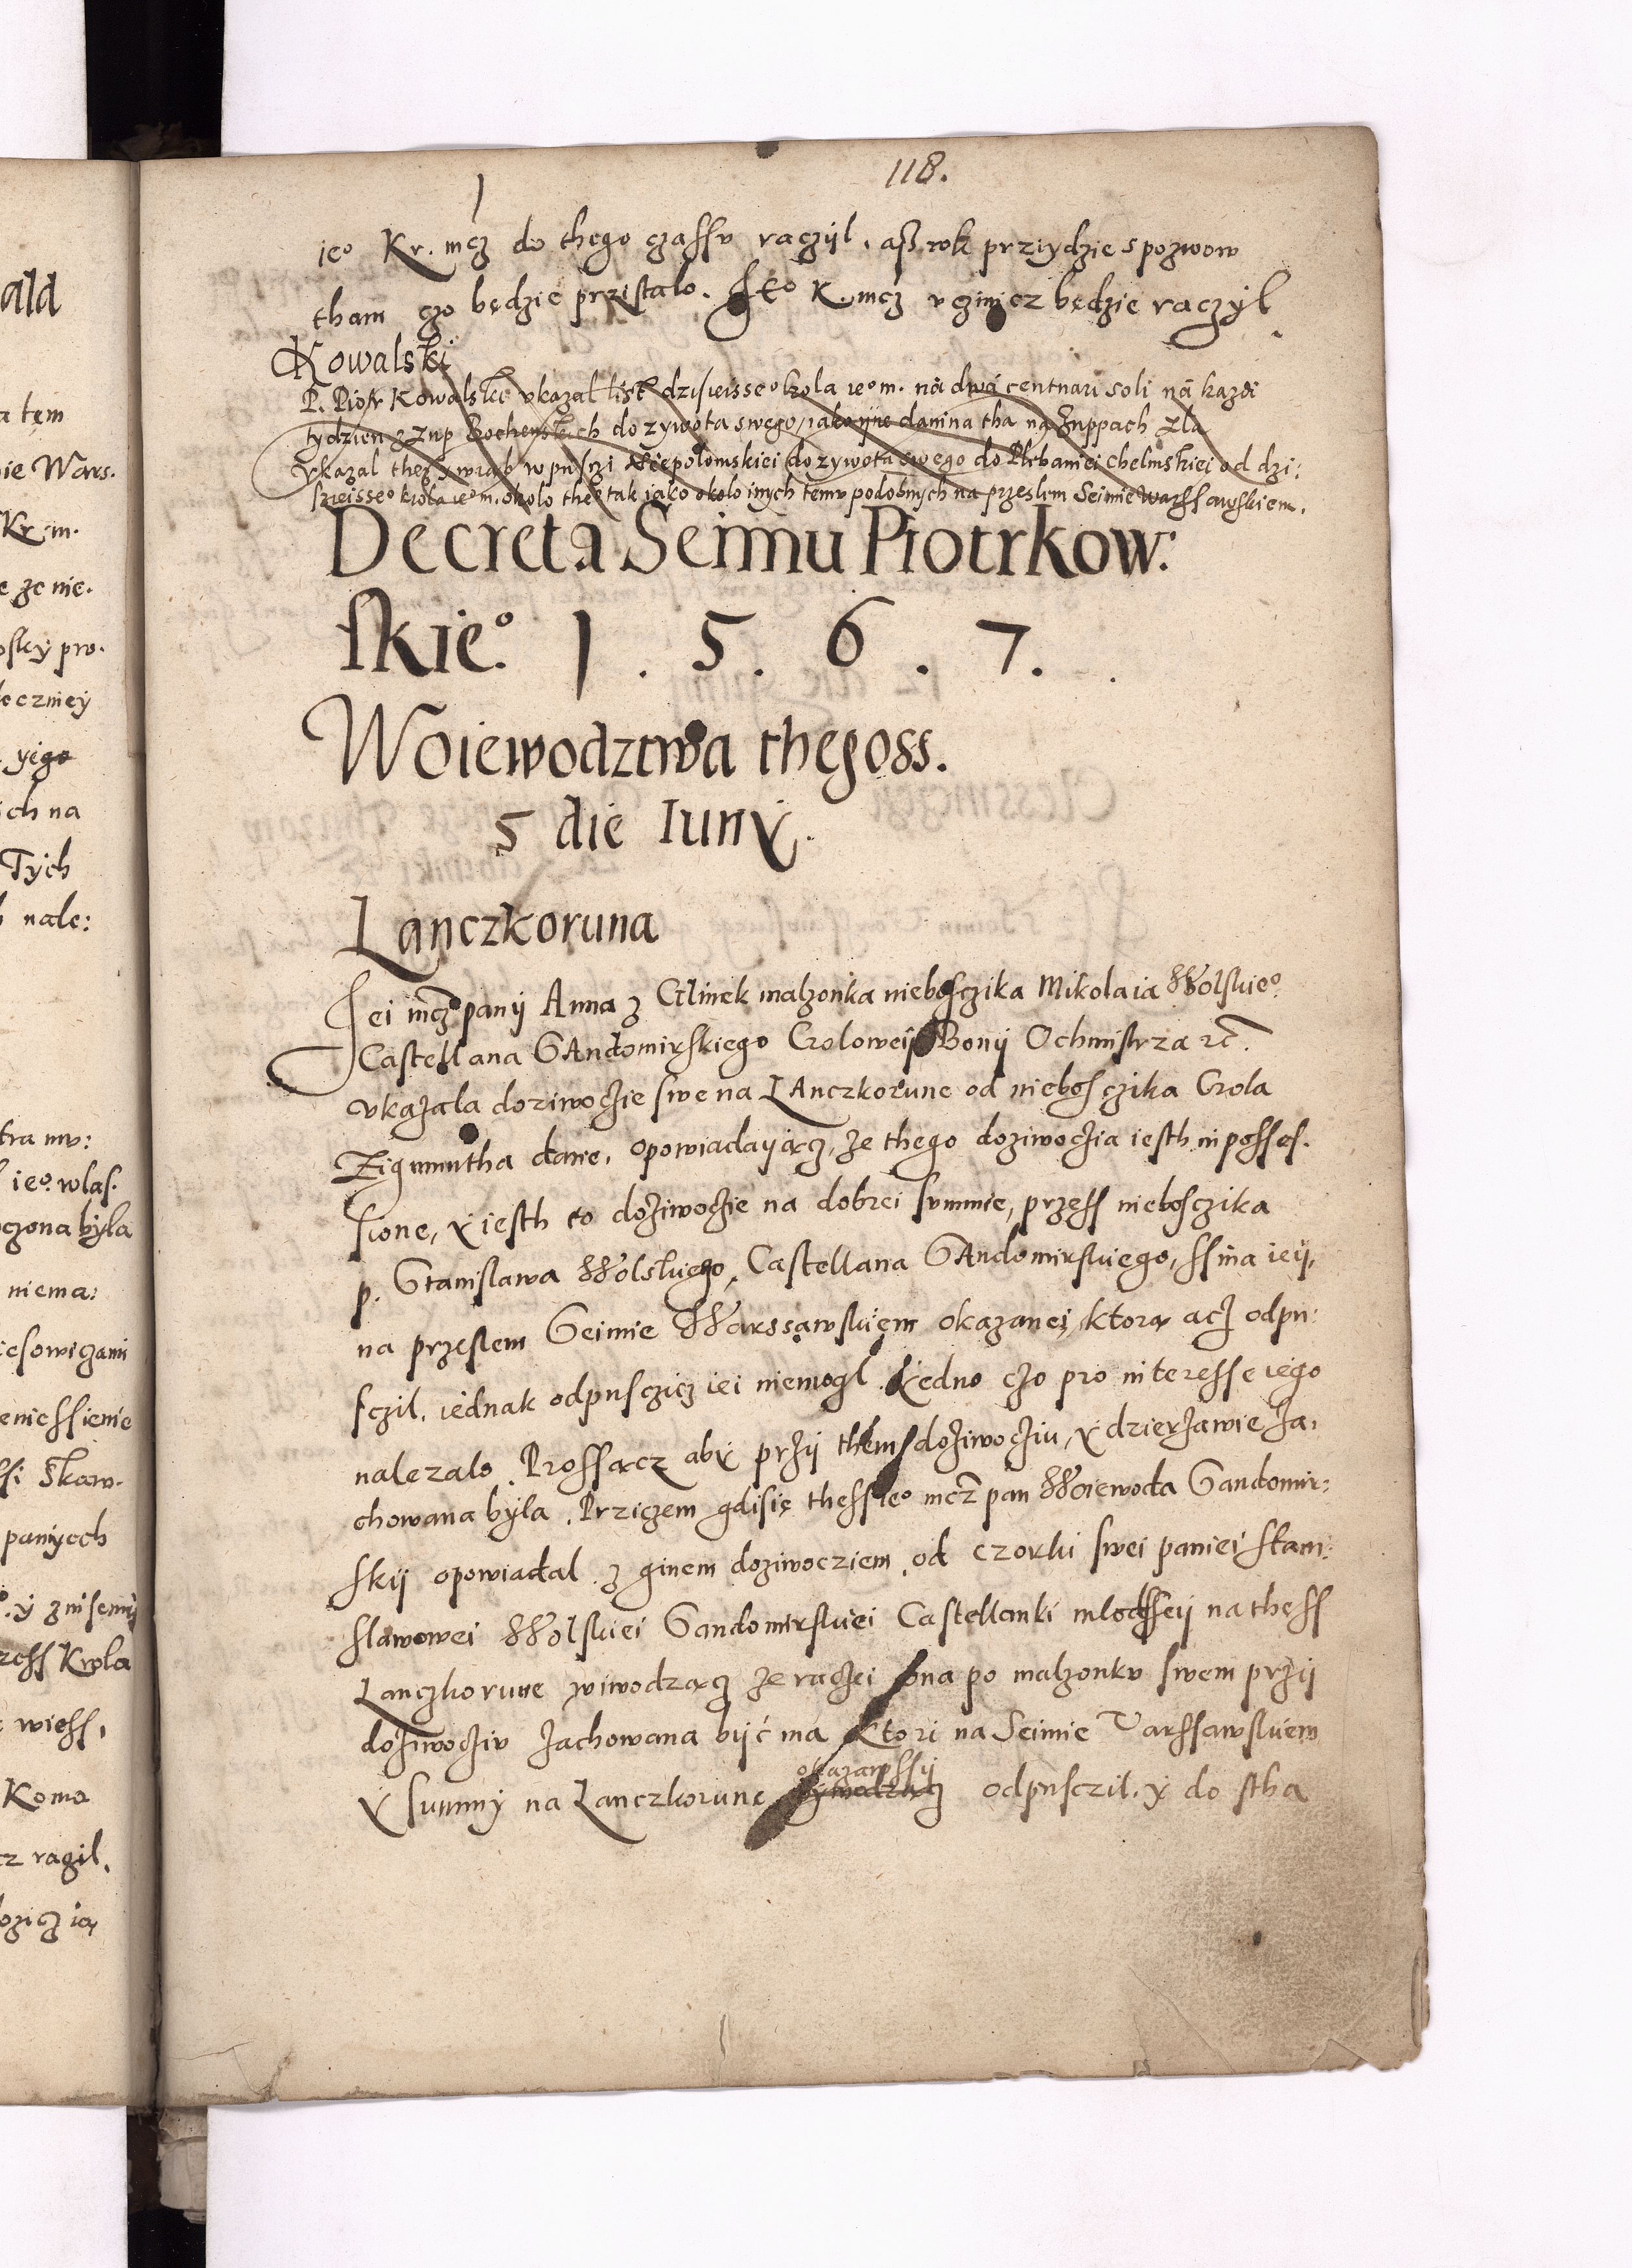 118.
ieo Kr. mcz do thego czassv raczyl, asz rok prziydzie s pozwow
tham czo będzie przistalo. Ieo K. mcz vczinicz będzie raczyl
Kowalski
P. Piotr Kowalski vkazal list dzisieisseo krola ieo m. na dwa centnari soli na kazdi
tydzien z zup Bochenskich do zywota swego, iako ijne danina tha na Zuppach zla
Vkazal thez wrąb w pusczi Niepolomskiei do zywota swego do Plebaniei chelmskiei od dzi:
sieisseo krola ieo m. okolo theo tak iako okolo inych temv podobnych na przeslem Seimie Warssawskiem.
Decreta Seimu Piotrkow:
skieo. 1. 5. 6. 7.
Woiewodztwa thegoss.
5 die Iuny.
Lanczkoruna
Iei mcz pany Anna z Glinek malzonka nieboszczika Mikolaia Wolskieo
Castellana SAndomirskiego Croloweij Bony Ochmistrza rc.
vkazala doziwoczie swe na LAnczkorune od niebosczika Crola
Zigmuntha dane, opowiadayącz, ze thego doziwoczia iesth in posses.
sione, y iesth to doziwoczie na dobrei summie, przess niebosczika
p. Stanislawa Wolskiego, Castellana SAndomirskiego, ssina ieij,
na przeslem Seimie Warssawskiem okazanei, ktorą acz odpu:
sczil, iednak odpusczicz iei niemogl. Iedno czo pro interesse iego
nalezalo. Prossącz aby przij them doziwocziu, y dzierzawie za:
chowana byla. Prziczem gdisię thess ieo mcz pan Woiewoda Sandomir:
skij opowiadal z ginem doziwocziem, od czorki swei paniei stani:
slawowei Wolskiei Sandomirskiei Castellanki mlodsseij na thess
Lanczkorune wiwodzącz ze raczei ona po malzonkv swem przij
doziwocziv zachowana być ma ktori na Seimie Varssawskiem
okazawssij
y summy na Lanczkorune wywodzącz odpusczil. y do stha